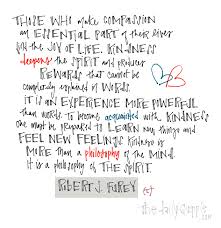 THOSE WHO make COMPASSION
an ESSENTIAL PART of their lives
find the JOY OF LIFE. KINDNESS
deepens the SPIRIT and produces
REWARDS that cannot be
completely explained in WORDS.
IT IS AN EXPERIENCE MORE POWERFUL
than words. To become acquainted with KINDNESS
one must be prepared to LEARN new things and
FEEL NEW FEELINGS. Kindness is
MORE THAN a philosophy of the MIND.
It is a philosophy OF THE SPIRIT.
ROBERT J. FUREY
the daily quipple